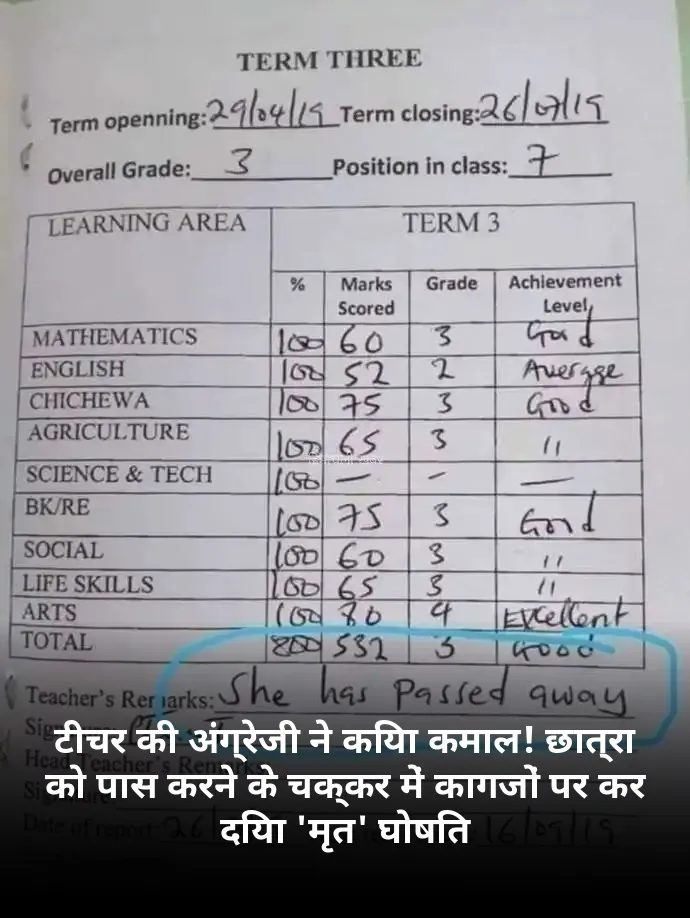 TERM THREE
Term openning: 29/04/19 Term closing: 26/07/19
Overall Grade: 3 Position in class: 7
LEARNING AREA TERM 3
% Marks Scored Grade Achievement Level
MATHEMATICS 100 60 3 Good
ENGLISH 100 52 2 Average
CHICHEWA 100 75 3 Good
AGRICULTURE 100 65 3 "
SCIENCE & TECH 100 — – —
BK/RE 100 75 3 Good
SOCIAL 100 60 3 "
LIFE SKILLS 100 65 3 "
ARTS 100 80 4 Excellent
TOTAL 800 532 3 Good
Teacher's Remarks: She has passed away
टीचर की अंग्रेजी ने किया कमाल! छात्रा
को पास करने के चक्कर में कागजों पर कर
दिया 'मृत' घोषित
Head Teacher's Remarks
Date of report 26 16/09/19